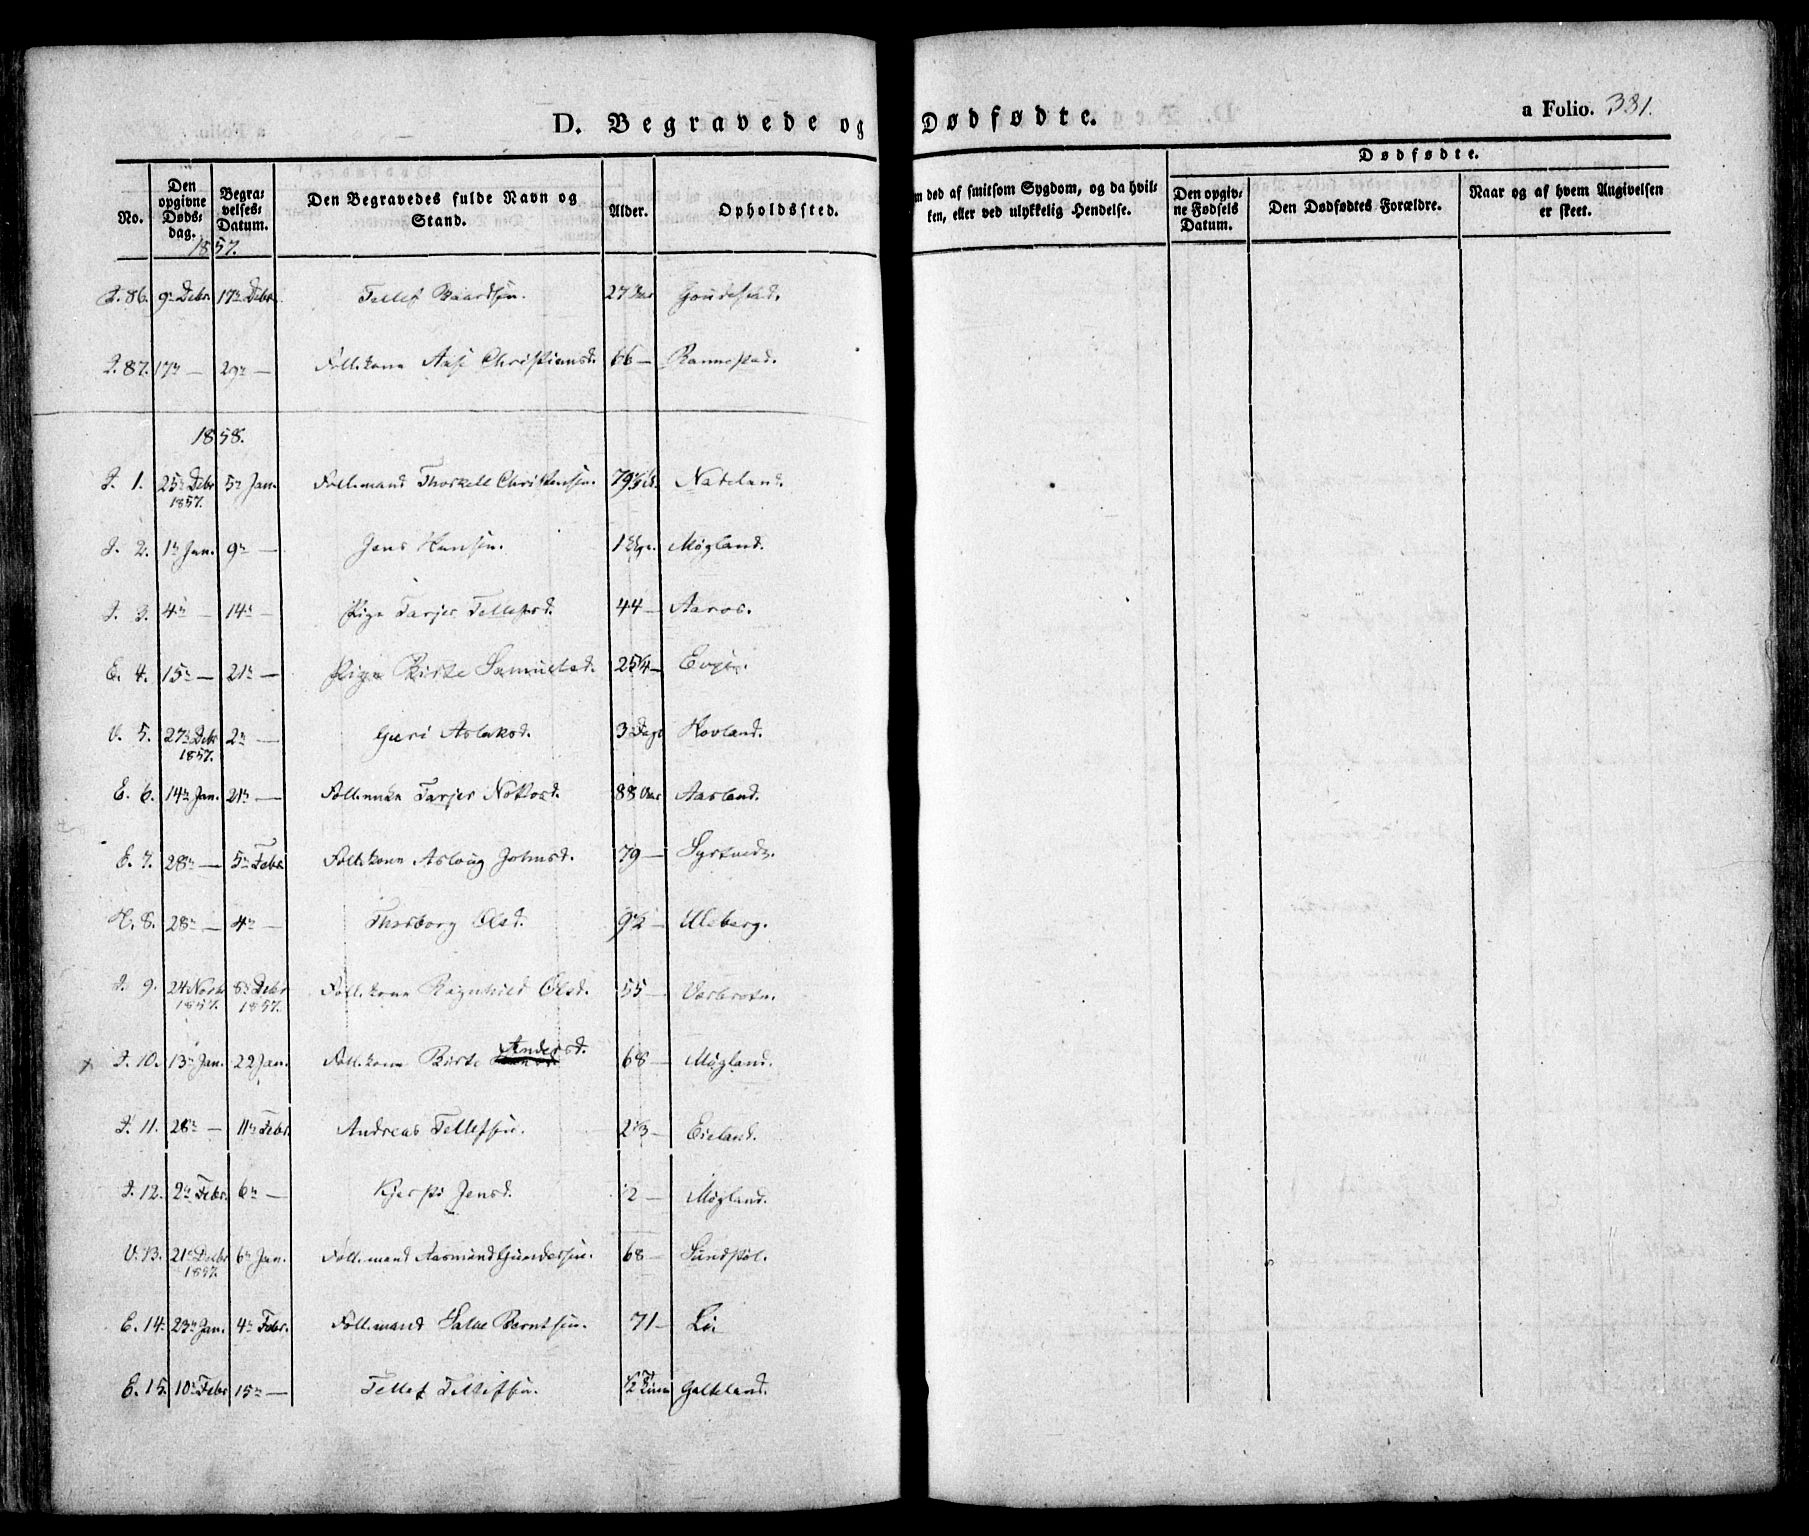 D. Begravede og Dødfødte.
a Folio. 331.
No.
Den opgivne Døds-dag.
Begra-velses-Datum.
Den Begravedes fulde Navn og Stand.
Alder.
Opholdssted.
m død af smitsom Sygdom, og da hvil-
ken, eller ved ulykkelig Hendelse.
Dødfødte.
Den opgiv-ne Fødsels Datum.
Den Dødfødtes Forældre.
Naar og af hvem Angivelsen er skeet.
1857.
86. 9n Debr. 17n Debr. Tellef Baardsen. 27 Aar
87. 17n — 29n — Føll.kone Aase Christiansd. 66 —
1858.
1. 25n Debr 1857. 5n Jan. Foll.mand Thorkell Christensen. 79 Nateland.
2. 1n Jan. 9n — Jens Hansen. 1 Møgland.
3. 4n — 14n — Pige Tarjer Tellefsd. 44 — Aaros.
E. 4. 15n — 21n — Pige Birte Samuelsd. 25 — Evje.
V. 5. 27n Debr 1857. 2n — Guri Aslaksd. 3 Dage Hovland.
E. 6. 14n Jan. 21n — Tarjer 88 Aar Aasland.
E. 7. 28n — 5n Febr. Føll.kone Aslaug Johnsd. 79 —
H. 8. 28n — 4n — Thorborg Olsd. 9 Uleberg.
9. 24 1857. 8n Debr 1857. Føll.kone Ragnhild Olsd. 55 —
10. 13n Jan. 22 Jan. Føll.kone Birte Andersd. 68 — Møgland.
11. 28n — 11n Febr. Andreas Tellefsen. 2 — Eieland.
12. 2n Febr. 6n — Kjersti Jensd. 2 — Møgland.
V. 13. 21n Debr 1857. 6n Jan. Føll.mand Aasmund Gundersen. 68 —
E. 14. 23n Jan. 4n Febr. Føll.mand Salve Berntsen. 71 — Lie
E. 15. 10n Febr 15n — Tellef Tellefsen. 1/2 Galteland.